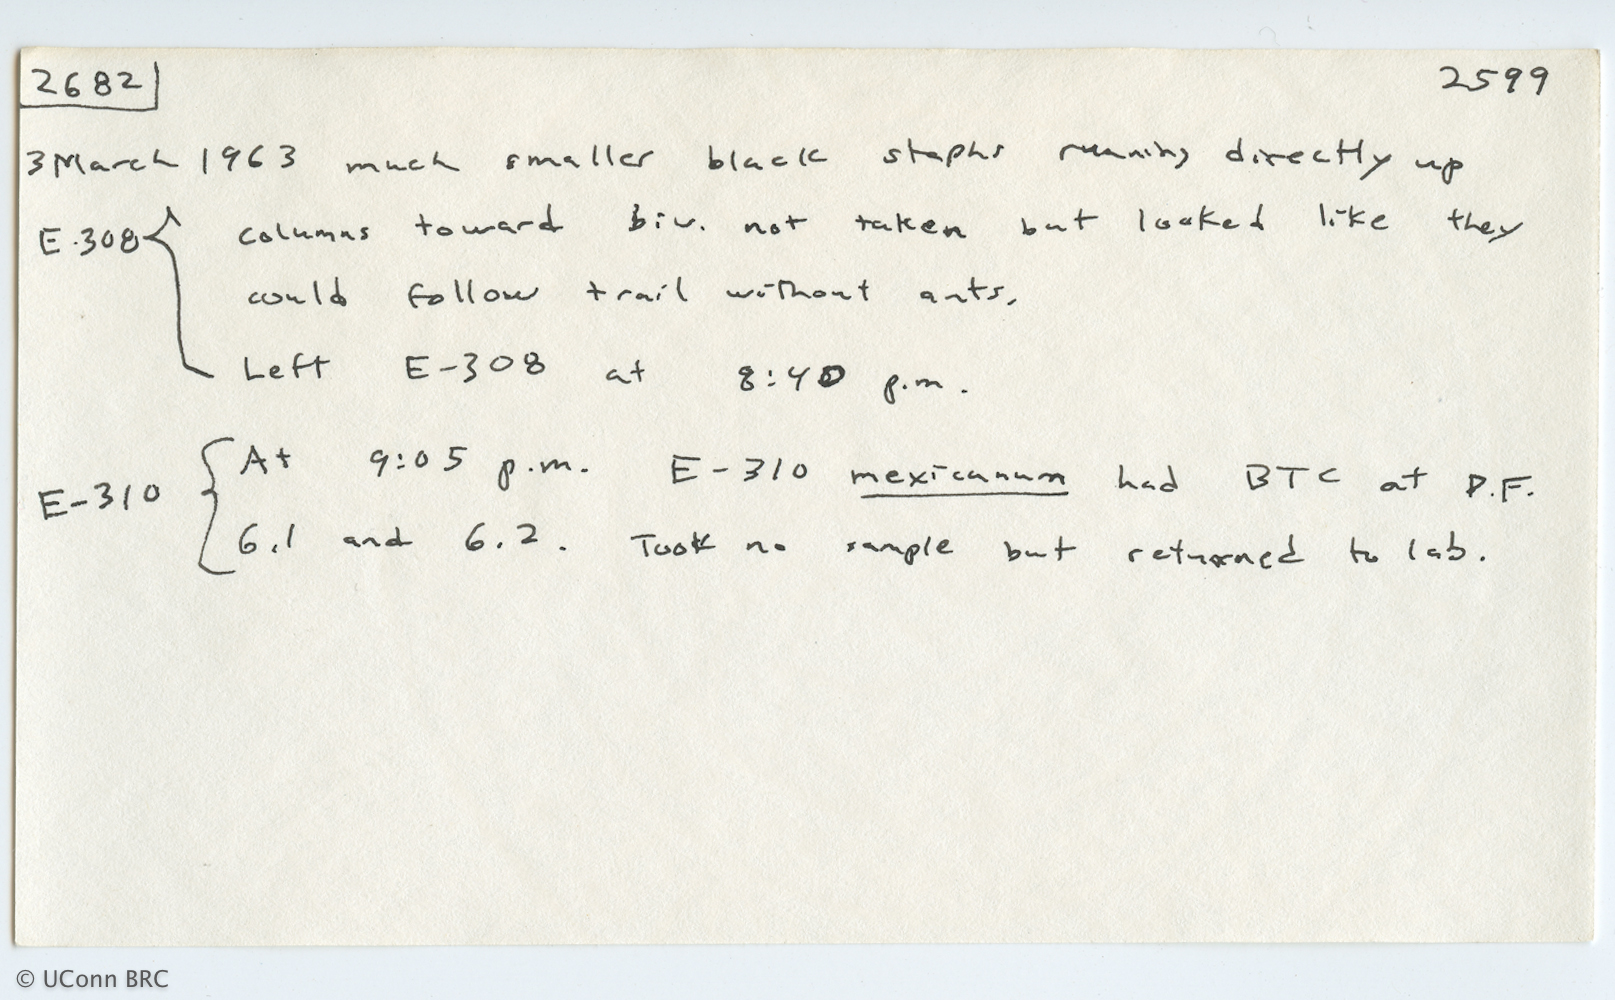 2682 2599
3 March 1963 much smaller black staphs running directly up
E-308 columns toward biv. not taken but looked like they
could follow trail without ants.
Left E-308 at 8:40 p.m.
At 9:05 p.m. E-310 mexicanum had BTC at P.F.
E-310
6.1 and 6.2. Took no sample but returned to lab.
© UConn BRC